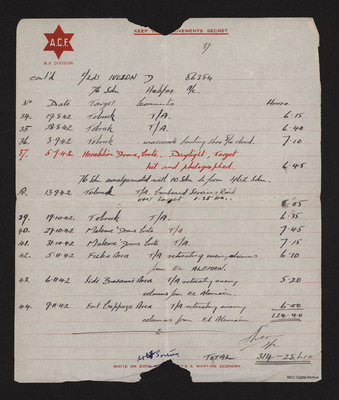 KEEP MOVEMENTS SECRET
A.C.F.
W.A. DIVISION
37
cont'd F/Sgt IVESON D 56354
76 Sdn Halifax A/c.
No Date Target Comments Hours.
34. 19.8.42 Tobruk T/A. 6.15
35. 28.8.42 Tobruk T/A. 6.40
36. 3.9.42 Tobruk bombing thro cloud. 7.10
37. 5.9.42 Heraklion Drome, Crete. Daylight, Target
hit and photographed. 6.45
76 Sdn amalgamated with 10 Sdn to form 462 Sdn.
38. 13.9.42 Tobruk T/A. Combined Services Raid
over Target
8.05
39. 19.10.42. Tobruk T/A. 6.35
40. 27.10.42 Maleme Drome Crete T/A 7.45
41. 31.10.42 Maleme Drome Crete T/A. 7.15
42. 5.11.42 Fuka Area T/A retreating enemy columns 6.10
from EL ALEMAIN.
43. 6.11.42 Sidi Barrani Area T/A retreating enemy 5.20
columns from EL Alemain.
44. 9.11.42 Fort Capuzzo Area T/A retreating enemy 6.00
columns from El Alemain
TOTAL 314-25 hrs
WRITE ON BOTH A WARTIME ECONOMY
IBCC Digital Archive